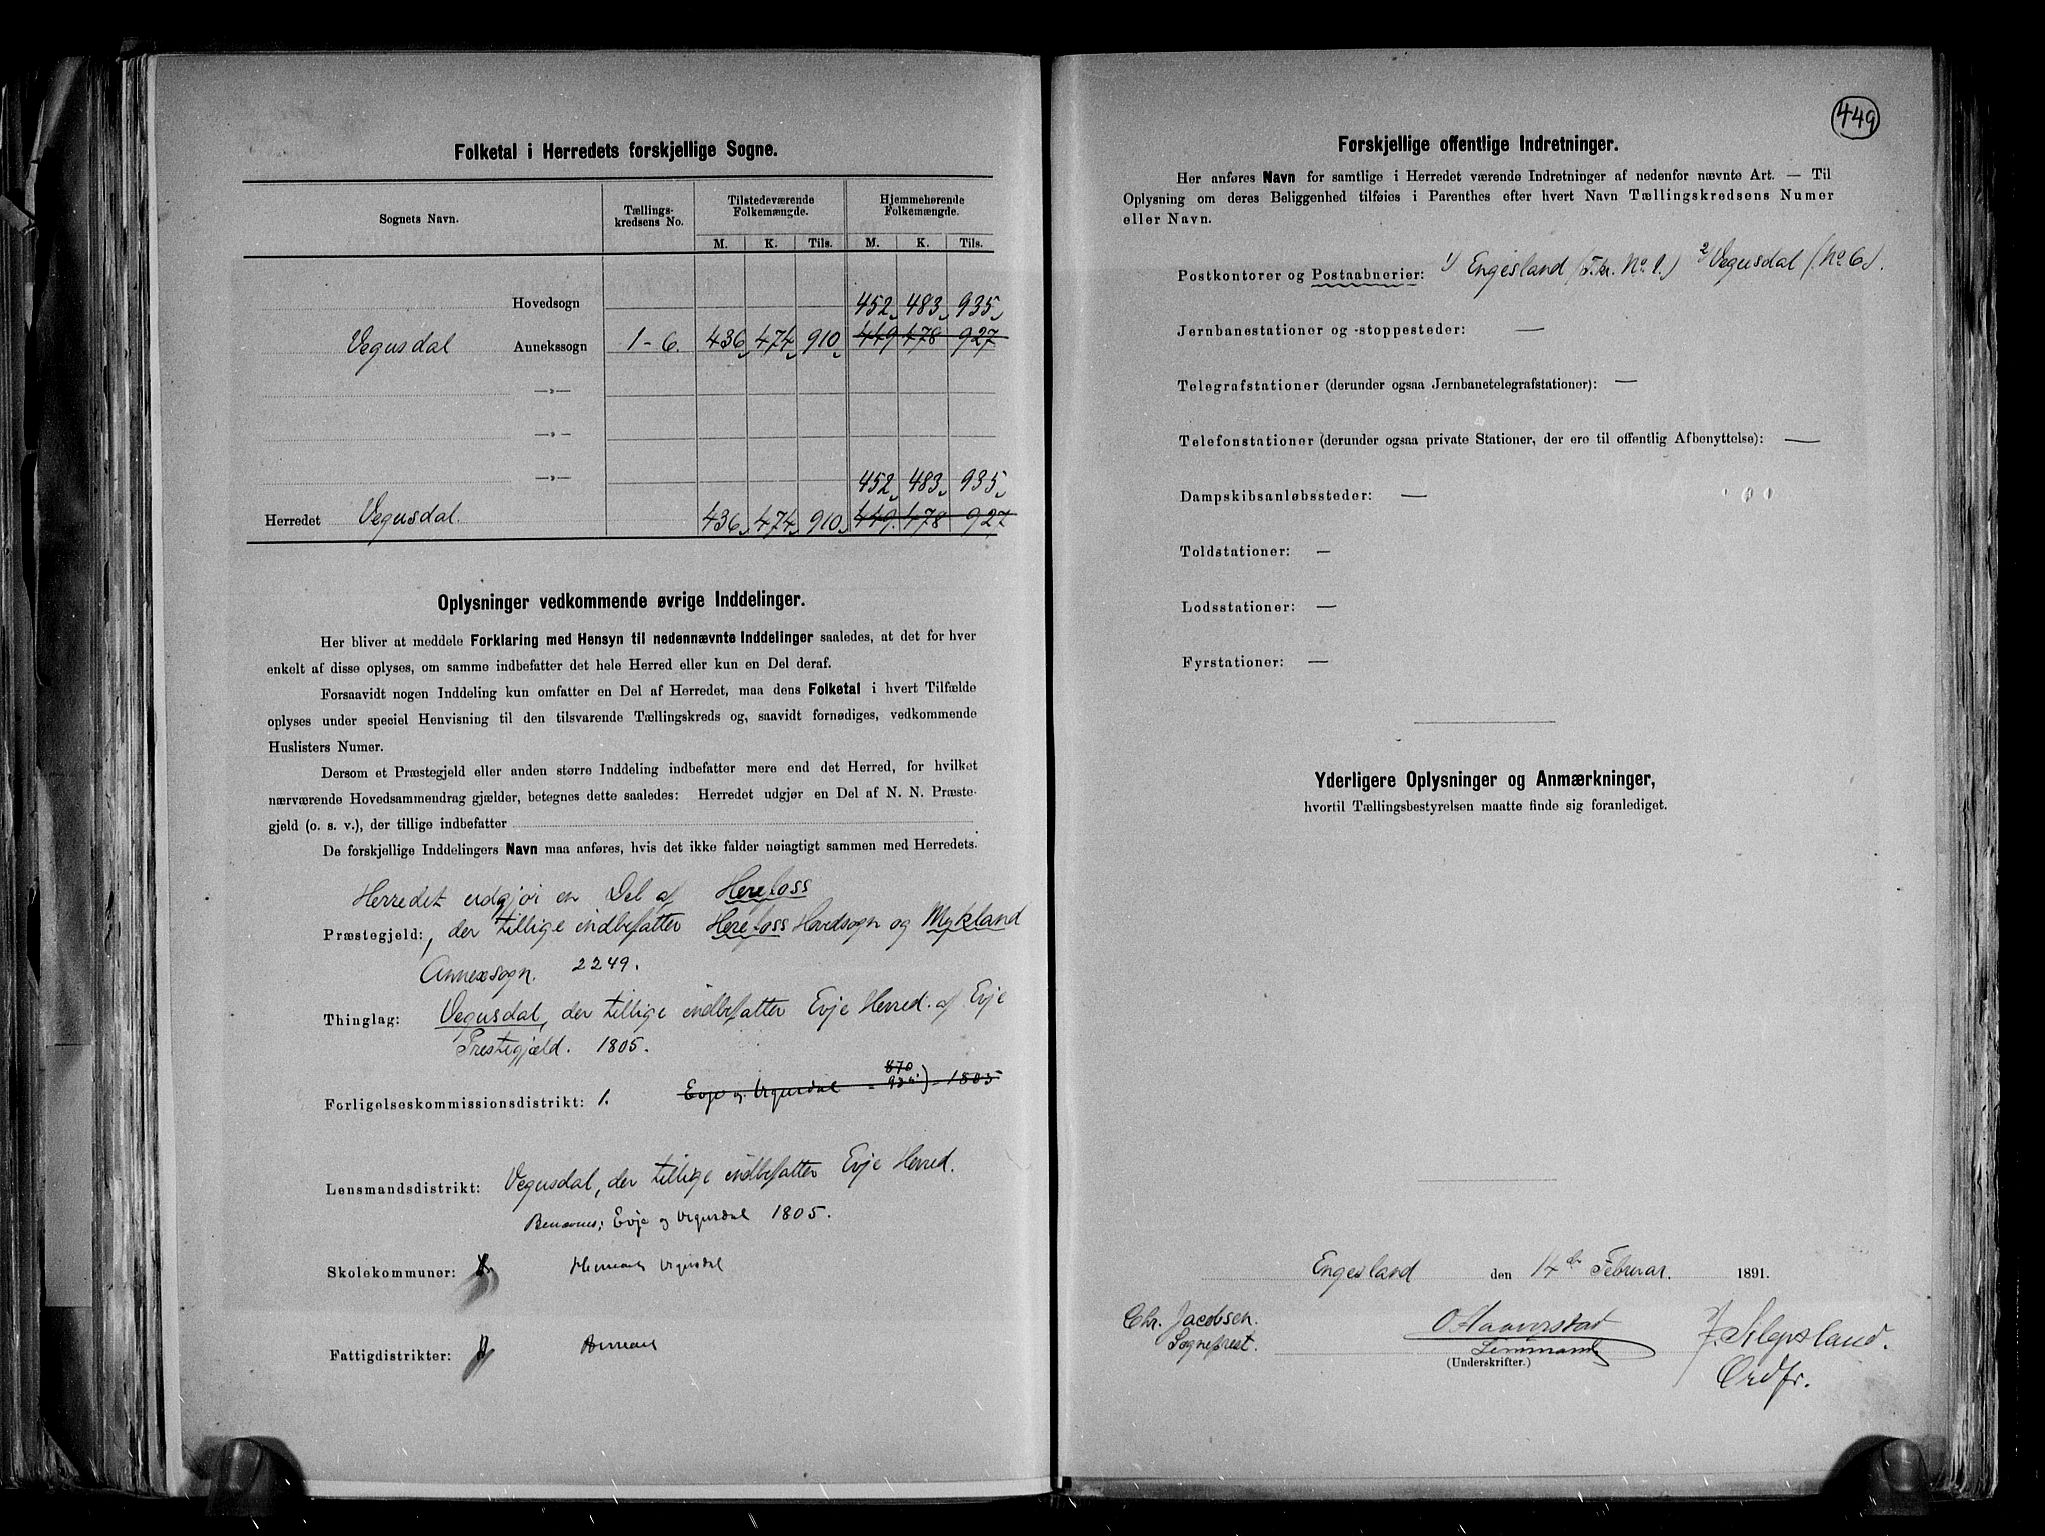 Folketal i Herredets forskjellige Sogne.
Sognets Navn. Tællings- kredsens No. Tilstedeværende Folkemængde. Hjemmehørende Folkemængde.
M. K. Tils. M. K. Tils.
Hovedsogn 452 483 935
Vegusdal Annekssogn 1-6. 436 474 910 449 478 927
—»—
—»—
—»— 452 483 935
Herredet Vegusdal. 436 474 910 449 478 927
Oplysninger vedkommende øvrige Inddelinger.
Her bliver at meddele Forklaring med Hensyn til nedennævnte Inddelinger saaledes, at det for hver
enkelt af disse oplyses, om samme indbefatter det hele Herred eller kun en Del deraf.
Forsaavidt nogen Inddeling kun omfatter en Del af Herredet, maa dens Folketal i hvert Tilfælde
oplyses under speciel Henvisning til den tilsvarende Tællingskreds og, saavidt fornødiges, vedkommende
Huslisters Numer.
Dersom et Præstegjeld eller anden større Inddeling indbefatter mere end det Herred, for hvilket
nærværende Hovedsammendrag gjælder, betegnes dette saaledes: Herredet udgjør en Del af N. N. Præste-
gjeld (o. s. v.), der tillige indbefatter
De forskjellige Inddelingers Navn maa anføres, hvis det ikke falder nøiagtigt sammen med Herredets.
Herredet udgjør en Del af Herefoss
Præstegjeld: , der tillige indbefatter Herefoss Hovedsogn og Mykland
Annexsogn. 2249.
Thinglag: Vegusdal, der tillige indbefatter Evje Herred af Evje
Prestegjæld. 1805.
870
Forligelseskommissionsdistrikt: 1. Evje og Vegusdal = 935) = 1805
Lensmandsdistrikt: Vegusdal, der tillige indbefatter Evje Herred.
Benævnes: Evje og Vegusdal 1805.
Skolekommuner: Herredet Vegusdal
Fattigdistrikter: Herredet
449
Forskjellige offentlige Indretninger.
Her anføres Navn for samtlige i Herredet værende Indretninger af nedenfor nævnte Art. — Til
Oplysning om deres Beliggenhed tilføies i Parenthes efter hvert Navn Tællingskredsens Numer
eller Navn.
Postkontorer og Postaabnerier: 1) Engesland (T.kr. No 1.) 2) Vegusdal (No 6).
Jernbanestationer og -stoppesteder: —
Telegrafstationer (derunder ogsaa Jernbanetelegrafstationer): —
Telefonstationer (derunder ogsaa private Stationer, der ere til offentlig Afbenyttelse): —
Dampskibsanløbssteder: —
Toldstationer: —
Lodsstationer: —
Fyrstationer: —
Yderligere Oplysninger og Anmærkninger,
hvortil Tællingsbestyrelsen maatte finde sig foranlediget.
Engesland den 14de Februar. 1891.
Chr. Jacobsen. O Haaverstad
Sogneprest. Lensmand
(Underskrifter.)
Ordfr.